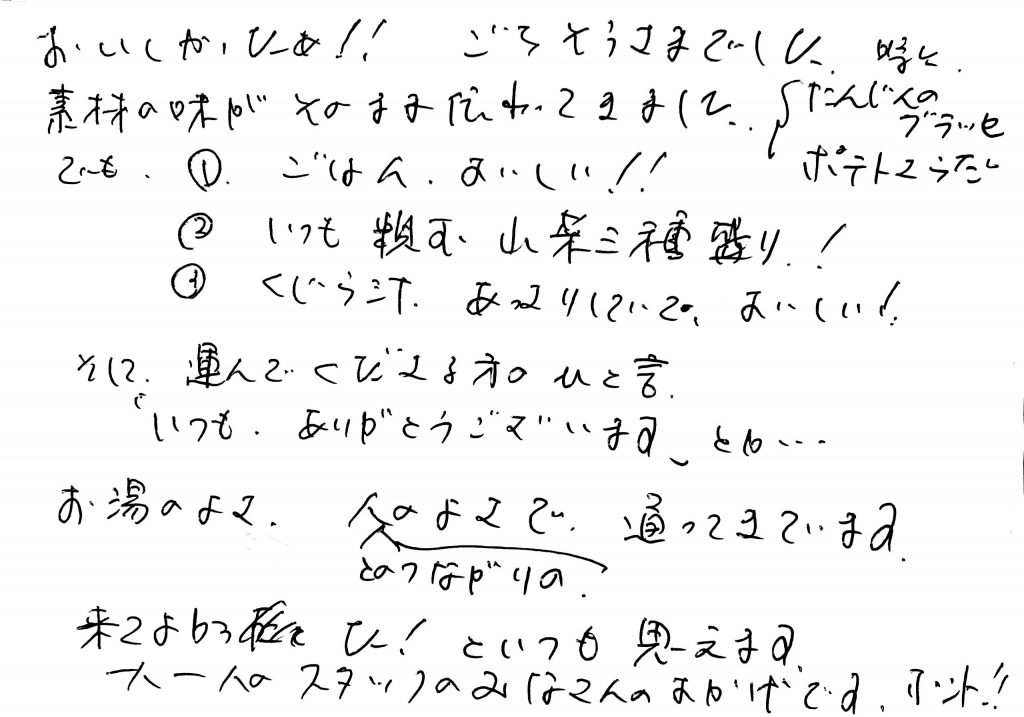 おいしかったぁ!! ごちそうさまでした。
素材の味がそのまま伝わってきました。
たんじんの
ブラッセ
ポテトさらだ
でも、① ごはん、おいしい!!
② いつも頼む、山菜三種盛り!
③ くじら汁、あっさりしていて、おいしい!
そして、運んでくださる方のひと言
「いつも、ありがとうございます」とか…
お湯のよさ、人のよさで、通ってきています。
とのつながりの
来てよかった!といつも思えます。
一人一人のスタッフのみなさんのおかげです。ホント!!